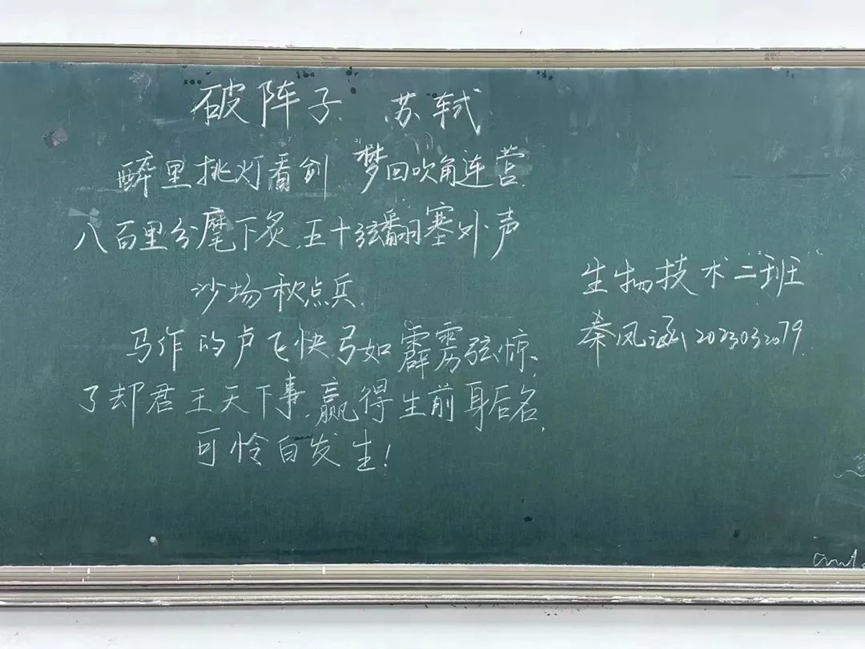 破阵子 苏轼
醉里挑灯看剑 梦回吹角连营.
八百里分麾下炙.五十弦翻塞外声
沙场秋点兵.
马作的卢飞快弓如霹雳弦惊.
了却君王天下事.赢得生前身后名.
可怜白发生!
生物技术二班
秦风涵